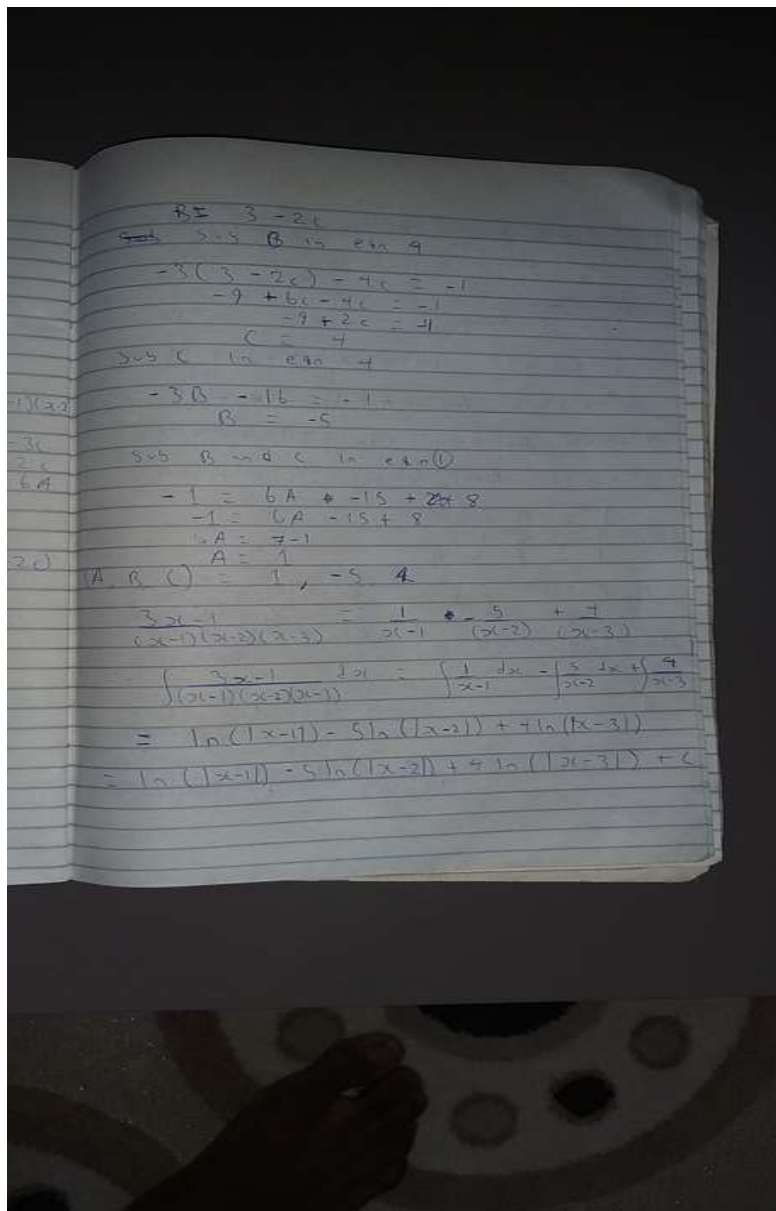 -1)(x-2
= 3c
2c
6A
2c)
B = 3 - 2c
Sub B in eqn 4
-3(3 - 2c) - 4c = -1
-9 + 6c - 4c = -1
-9 + 2c = -1
C = 4
Sub C in eqn 4
-3B - 16 = -1
B = -5
Sub B and C in eqn ①
-1 = 6A + -15 + 8
-1 = 6A - 15 + 8
6A = 7-1
A = 1
(A, B, C) = 1, -5 4
3x-1 / (x-1)(x-2)(x-3) = 1 / x-1 - 5 / (x-2) + 4 / (x-3)
∫ 3x-1 / (x-1)(x-2)(x-3) dx = ∫ 1 / x-1 dx - ∫ 5 / x-2 dx + ∫ 4 / x-3
= ln(|x-1|) - 5ln(|x-2|) + 4ln(|x-3|)
= ln(|x-1|) - 5ln(|x-2|) + 4ln(|x-3|) + c